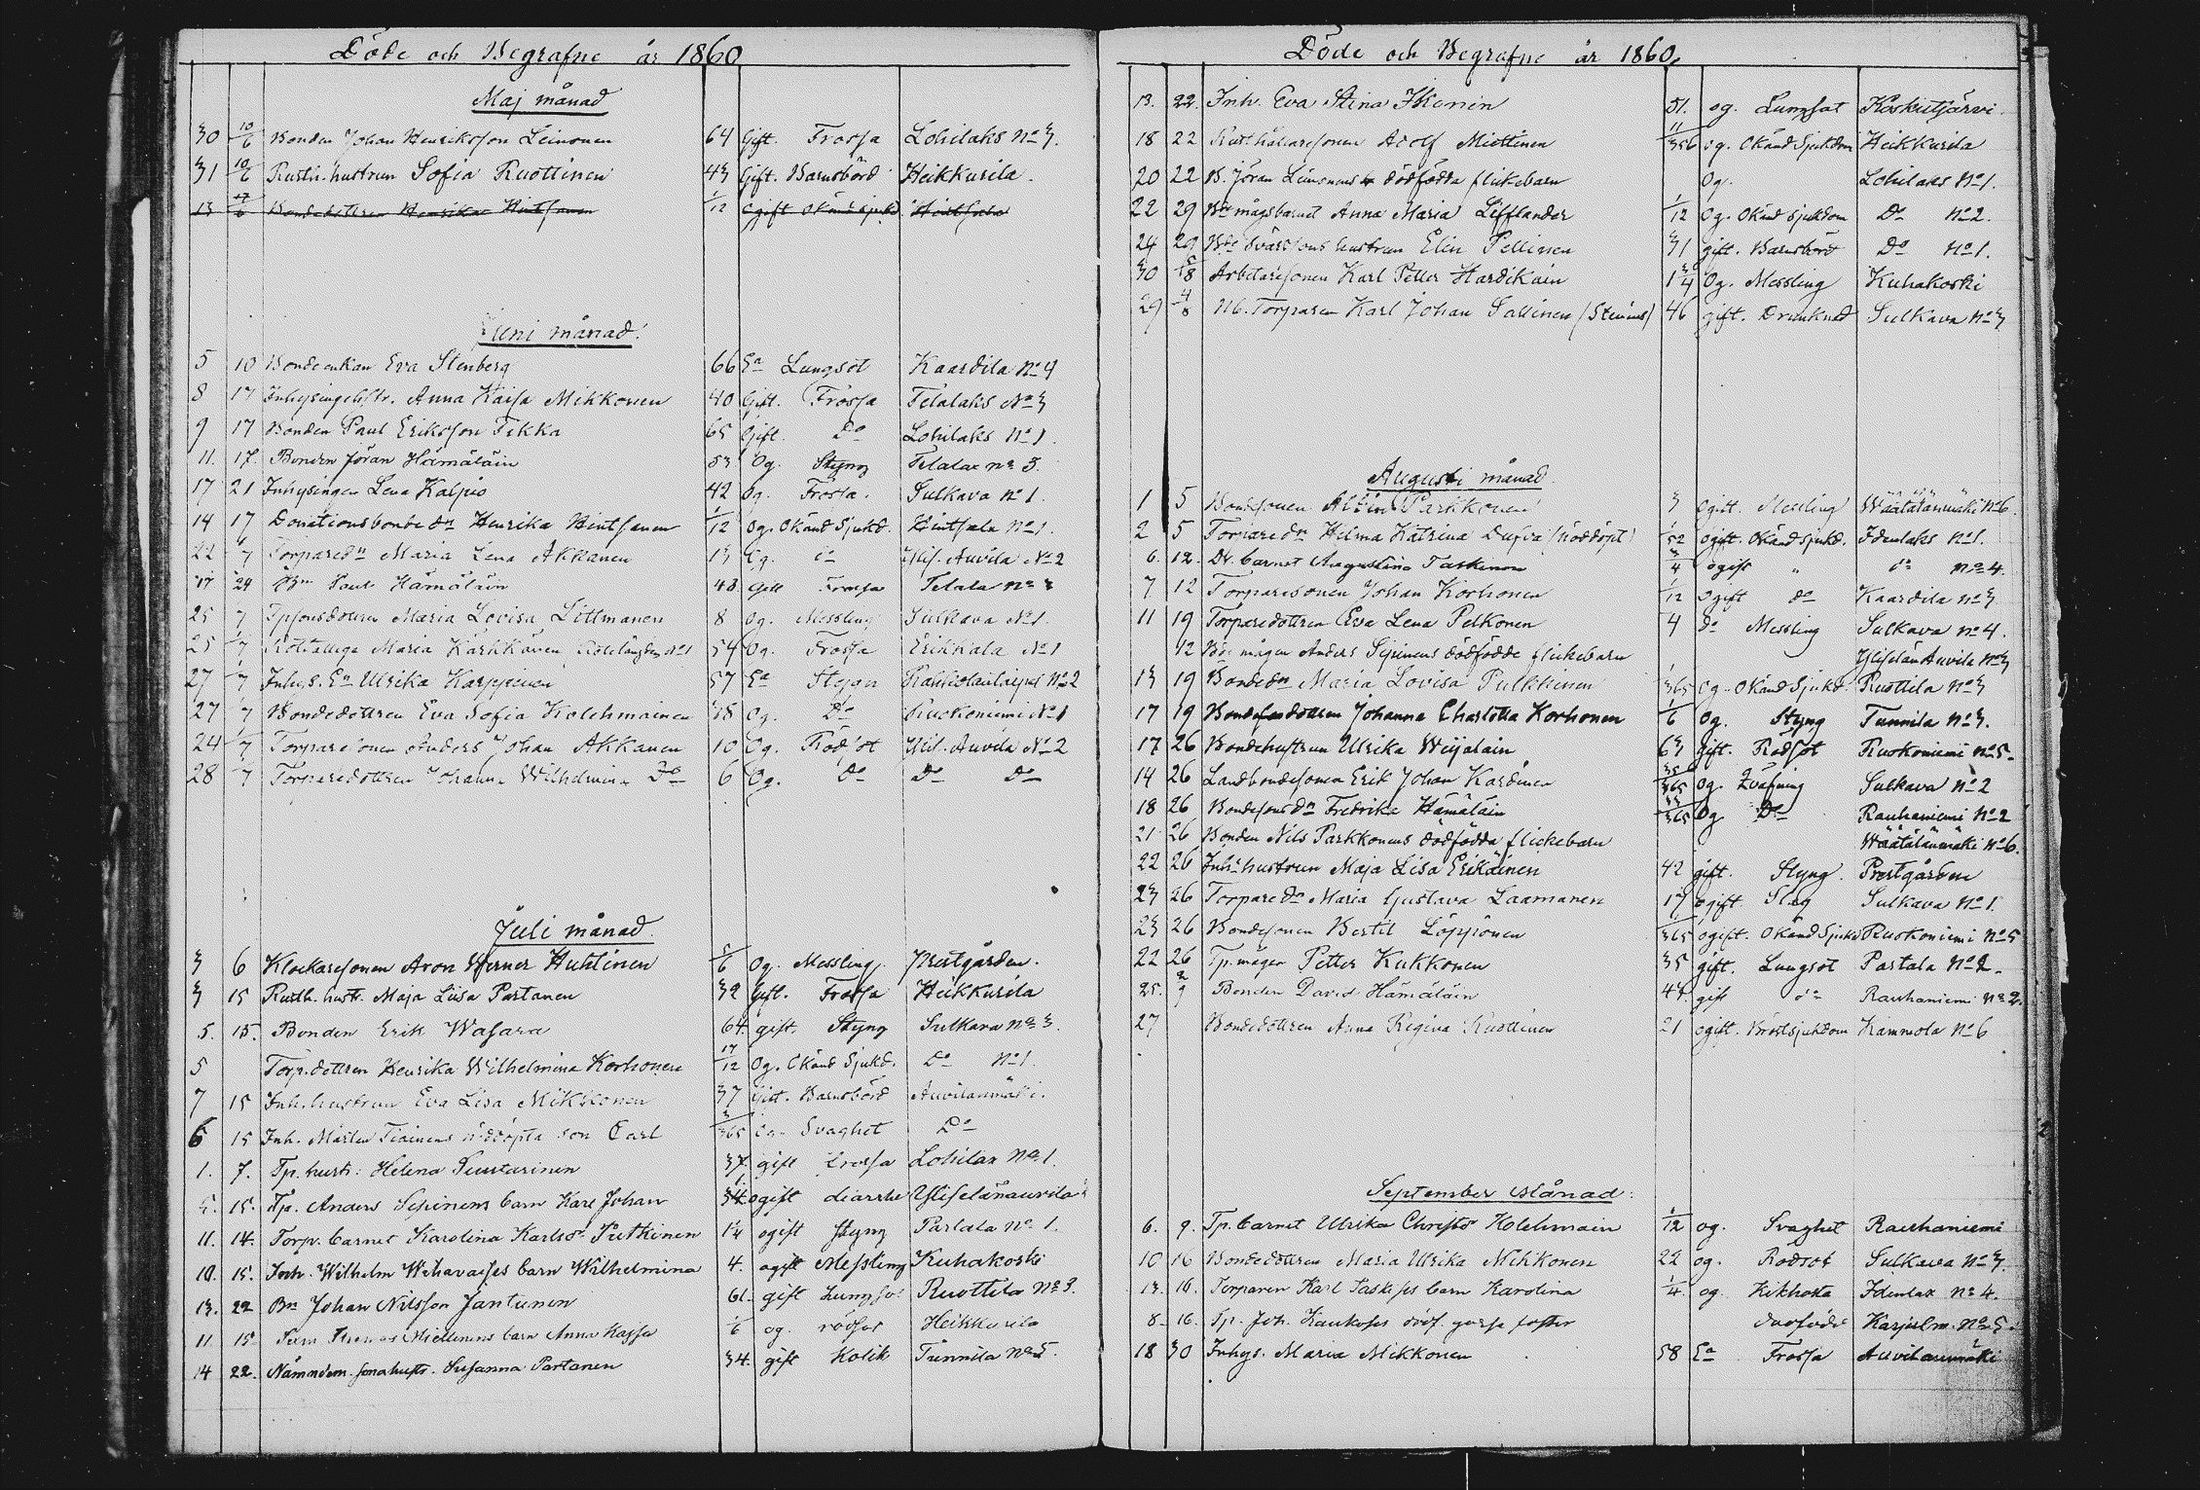 Döde och Begrafne år 1860
Maj månad
30 10/6 Bonden Johan Henriksson Leinonen 64 Gift. Frossa Lohilaks No 3.
31 10/6 Rusth. hustrun Sofia Ruottinen 43 Gift. Barnsbörd Heikkurila.
13 17/6 Bondedottren Henrika Hintsanen 1/12 Ogift Okänd sjukd. Hintsala
Juni månad.
5 10 Bondeenkan Eva Stenberg 66 Ea Lungsot Kaardila No 4
8 17 Inhysingehstr. Anna Kaisa Mikkonen 40 Gift. Frossa Telalaks No 3
9 17 Bonden Paul Eriksson Tikka 65 Gift. Do Lohilaks No 1.
11. 17. Bonden Jöran Hämäläin 53 Og. Styng Telalax no 3.
17 21 Inhysingen Lena Kalpio 42 Og. Frossa. Sulkava No 1.
14 17 Donationsbonde dn Henrika Hintsanen 1/12 Og. Okänd Sjukd. Hintsala No 1.
22 1/7 Torparedn Maria Lena Akkanen 13 Og. do Ylis. Auvila No 2
17 24 Paul Hämäläin 48 Gift Frossa Telala no 3
25 1/7 Tpsonsdottren Maria Lovisa Littmanen 8 Og. Messling Sulkava No 1.
25 1/7 Rotfattiga Maria Kärkkänen 54 Og. Frossa Erikkala No 1
27 1/7 Inhys. En Ulrika Karppinen 57 Ea Styng No 2
27 1/7 Bondedottren Eva Sofia Kolehmainen 18 Og. Do Ruokoniemi No 1
24 1/7 Torparesonen Anders Johan Akkanen 10 Og. Rödsot Ylis. Auvila No 2
28 1/7 Torparedottren Johanna Wilhelmina Do 6 Og. Do Do Do
Juli månad.
3 6 Klockaresonen Aron Werner Huhtinen 5/6 Og. Messling. Prestgården.
3 15 Rusth. hustr. Maja Liisa Partanen 32 Gift. Frossa Heikkurila
5. 15. Bonden Erik Wasara 64 gift. Styng Sulkava no 3.
5 Torp. dottren Henrika Wilhelmina Korhonen 17/12 Og. Okänd Sjukd. Do No 1.
7 15 Inh. hustrun Eva Lisa Mikkonen 37 Gift. Barnsbörd Auvilanmäki.
6 15 Inh. Mårten Tiainens nöddöpta son Carl 3/365 Og. Svaghet Do
1. 7. Tp. hustr: Helena Suutarinen 37. gift Frossa Lohilax No 1.
5. 15. Tp. Anders Sepinens barn Karl Johan 3/4. ogift diarrhe Ylisenänauvila
11. 14. Torp. barnet Karolina Karlsd. Putkinen 1/4 ogift Styng Partala no 1.
10. 15. Inh. Wilhelm barn Wilhelmina 4. ogift Messling Kuhakoski
13. 22. Bn Johan Nilsson Jantunen 61. gift Lungsot Ruottila No 3.
11. 15 Miettinens barn Anna Kajsa 1/6 og. rödsot Heikkurila
14 22. Nämndem. sonahustr. Susanna Partanen 34. gift Kolik Tunnila No 5.
Döde och Begrafne år 1860.
13. 22. Inh. Eva Stina Ikonin 51. og. Lungsot Koskutjärvi.
18 22 Rusthållaresonen Adolf Miettinen 11/356 og. Okänd Sjukdom Heikkurila
20 22 B. Jöran Leinonens dödfödda flickebarn Og. Lohilaks No 1.
22 29 Bn mågsbarnet Anna Maria Lefflander 1/12 Og. Okänd Sjukdom Do No 2.
24 29 Bds svärsons hustrun Elin Pellinen 31 gift. Barnsbörd Do No 1.
30 5/8 Arbetaresonen Karl Petter Hardikain 1 3/4 Og. Messling Kuhakoski
29 4/8 Nb. Torparen Karl Johan Sallinen (Stenius) 46 gift. Drunknad Sulkava No 3
Augusti månad.
1 5 Bondesonen Albin Parkkonen 3 Ogift. Messling Wäätälänmäki No 6.
2 5 Torparedn Helma Katrina Dufva (nöddöpt) 1/52 ogift. Okänd sjukd. Idenlaks No 1.
6. 12. Dr. barnet Augustina Taskinen 3/4 ogift " do no 4.
7 12 Torparesonen Johan Korhonen 1/12 Ogift do Kaardila No 3
11 19 Torparedottren Eva Lena Pelkonen 4 do Messling Sulkava No 4.
12 Bds mågen Anders Sepinens dödfödde flickebarn Ylisenän Auvila No 3
13 19 Bondedn Maria Lovisa Pulkkinen 1/365 Og. Okänd Sjukd. Ruottila No 3
17 19 Bondesdottren Johanna Charlotta Korhonen 1/6 Og. Styng Tunnila No 3.
17 26 Bondehustrun Ulrika Weijalain 63 gift. Rödsot Ruokoniemi No 5.
14 26 Landbondesonen Erik Johan Kardinen 35/365 Og. Qväfning Sulkava No 2
18 26 Bondesons dn Fredrika Hämäläin /365 Og Do Rauhaniemi No 2
21 26 Bonden Nils Parkkonens dödfödda flickebarn Wäätälänmäki No 6.
22 26 Inh. hustrun Maja Lisa Erikäinen 42 gift. Styng. Prestgården
23 26 Torparedn Maria Gustava Laamanen 17 ogift. Slag Sulkava No 1.
23 26 Bondesonen Bertil Löppönen 1/365 ogift. Okänd Sjukd Ruokoniemi No 5
22 26 Tp. mågen Petter Kukkonen 35 gift. Lungsot Partala No 2.
25. 2/9 Bonden David Hämäläin 44 gift do Rauhaniemi no 2.
27 Bondedottren Anna Regina Ruottinen 21 ogift. Bröstsjukdom Kammola No 6
September Månad:
6. 9. Tp. barnet Ulrika Christ. Kolehmain 1/12 og. Svaghet Rauhaniemi
10 16 Bondedottren Maria Ulrika Mikkonen 22 og. Rödsot Sulkava No 3.
13. 16. Torparen Karl barn Karolina 1/4. og Kikhosta Idenlax no 4.
8. 16. Tp. Joh. dödf. gosse foster dödföd No 5.
18 30 Inhys. Maria Mikkonen 58 Ea Frossa Auvilanmäki